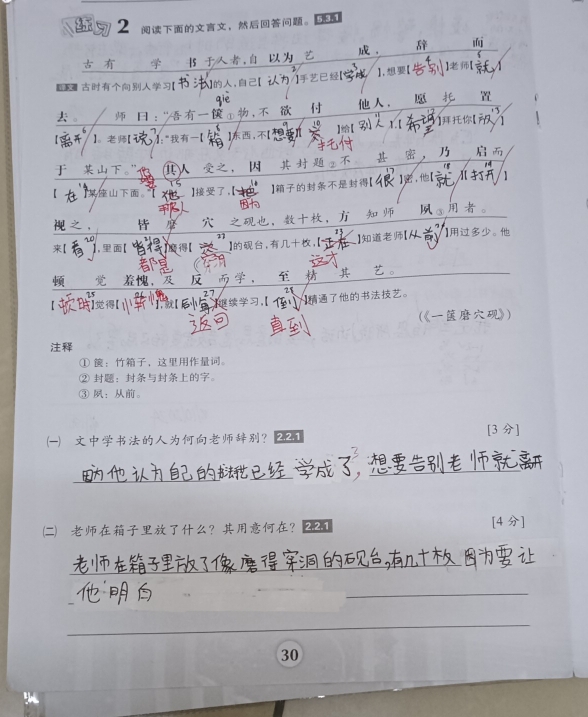 练习 2 阅读下面的文言文，然后回答问题。 5.3.1
古有学书于人者，自以为艺成，辞而
译文 古时有个向别人学习【书法】的人，自己【认为】手艺已经【学成】，想要【告别】老师【就】
qie
去。师曰：“吾有一箧①物，不欲付他人，愿托置
【离开】。老师【说】：“我有一【箱】东西，不【想要】【】给【别人】，【希望】拜托你【放】
手托付
于某山下。”其人受之，因其封题②不甚密，乃启而
【在】某座山下面。”【他】接受了，【】箱子的封条不是封得【很】密，他【就】【打开】
那人 因为
视之，皆磨穴之砚也，数十枚，方知师夙③用者。
来【看】，里面【皆得】磨得【】的砚台，有几十枚，【正在】知道老师【从前】用过多少。他
都是 穿洞 这才
顿觉羞愧，及反而学，至精其艺。
【顿时】觉得【羞愧】，就【】继续学习，【】精通了他的书法技艺。
返回 直到
（《一箧磨穴砚》）
注释
① 箧：竹箱子，这里用作量词。
② 封题：封条与封条上的字。
③ 夙：从前。
㈠ 文中学书法的人为何向老师辞别？ 2.2.1 [3 分]
因为他认为自己的技艺已经学成了，想要告别老师就离开
㈡ 老师在箱子里放了什么？其用意何在？ 2.2.1 [4 分]
老师在箱子里放了像磨得穿洞的砚台，有几十枚 因为要让
他明白
30